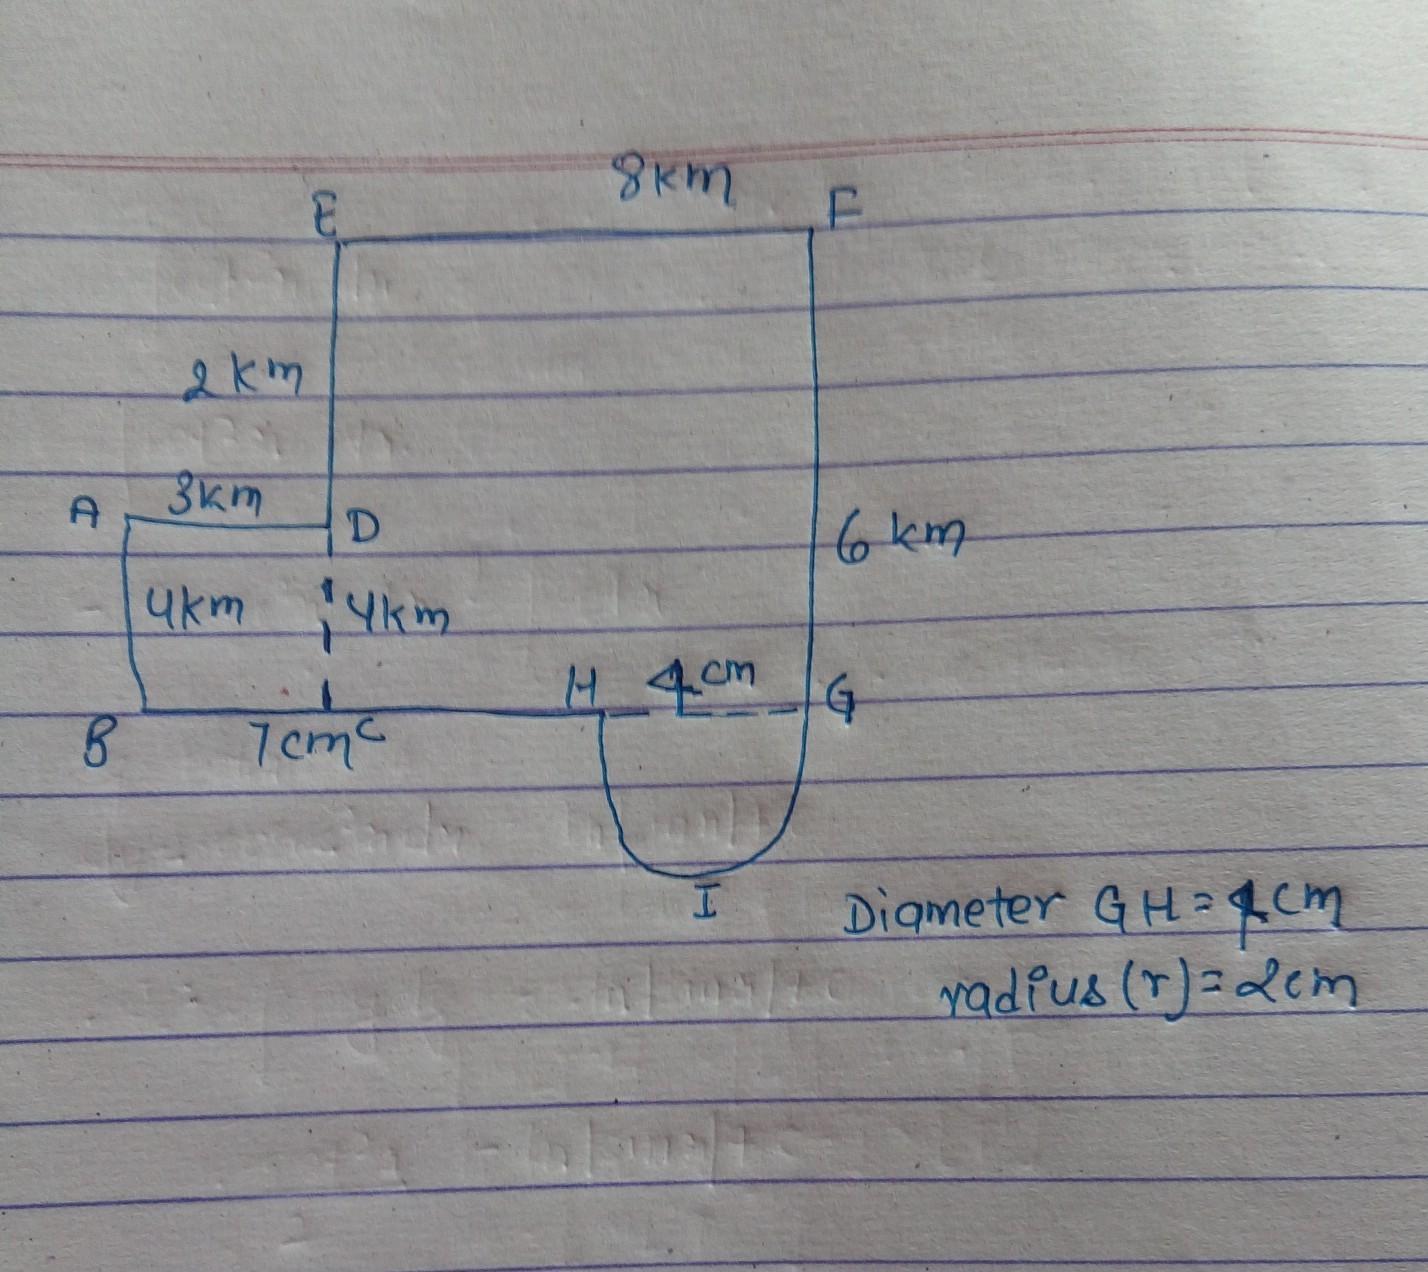 8km
E F
2 km
3km
A D
6 km
4km 4km
H 4 cm G
B 7cm C
I
Diameter GH = 4cm
radius (r) = 2cm